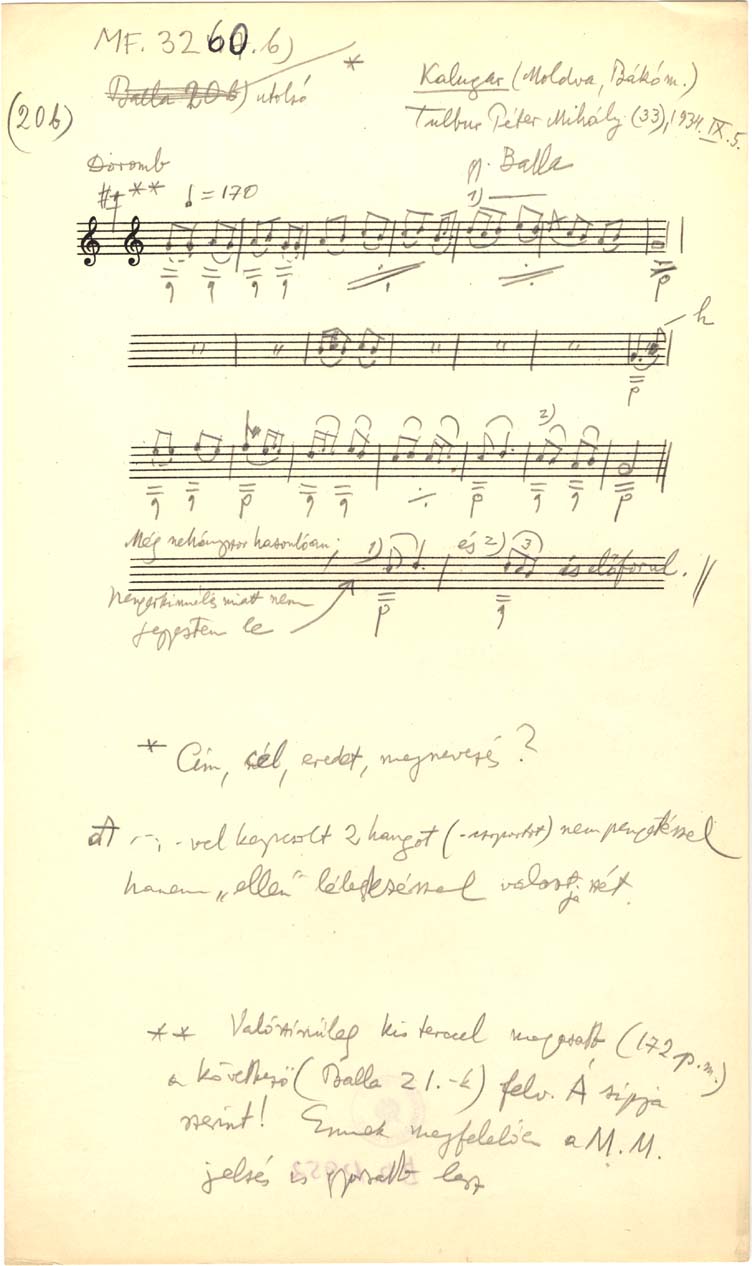 MF. 3260.b)
*
Balla 20b) utolsó
Kalugar (Moldva, Bákóm.)
(20b)
Tulbur Péter Mihály (33), 1934. IX. 5.
Doromb
gy. Balla
** ♩ = 170
1)
h
2)
Még nehányszor hasonlóan;
1)
és 2)
3
is előforul.
miatt nem
le
* Cím, cél, eredet, megnevezés?
-vel kapcsolt 2 hangot (-csoportot) nem pengetéssel
hanem „ellen" lélegzéssel választja szét.
** Valószinűleg kis terccel magasabb (172 p.m.)
a következő (Balla 21.-k) felv. Á sípja
szerint! Ennek megfelelően a M.M.
jelzés is gyorsabb lesz